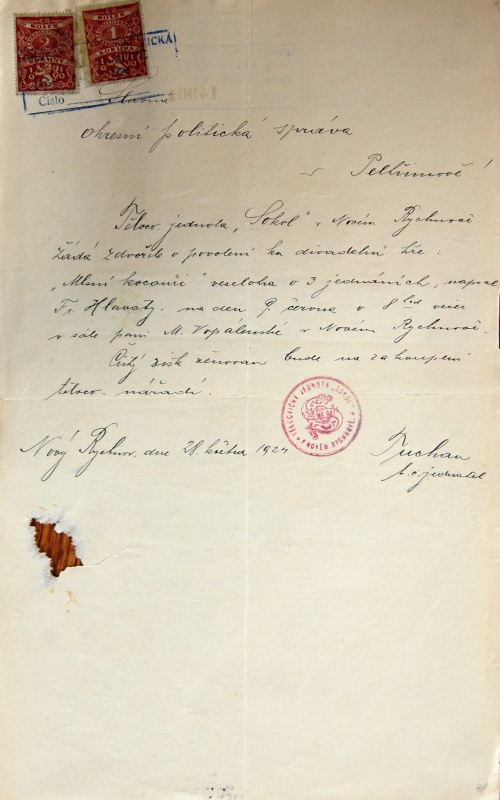 KOLEK
2
KORUNY
KOLEK
1
KORUNA
Číslo
Slavná
okresní politická správa
v Pelhřimově!
Tělocv. jednota „Sokol" v Novém Rychnově
žádá zdvořile o povolení ku divadelní hře:
„Mlsní kocouři" veselohra o 3 jednáních, napsal
Fr. Hlavatý, na den 9. června o 8 hod večer
v sále paní M. Vopálenské v Novém Rychnově.
Čistý zisk věnován bude na zakoupení
tělocv. nářadí.
TĚLOCVIČNÁ JEDNOTA „SOKOL"
V NOVÉM RYCHNOVĚ
Nový Rychnov, dne 28. května 1924
Tuchan
t. č. jednatel